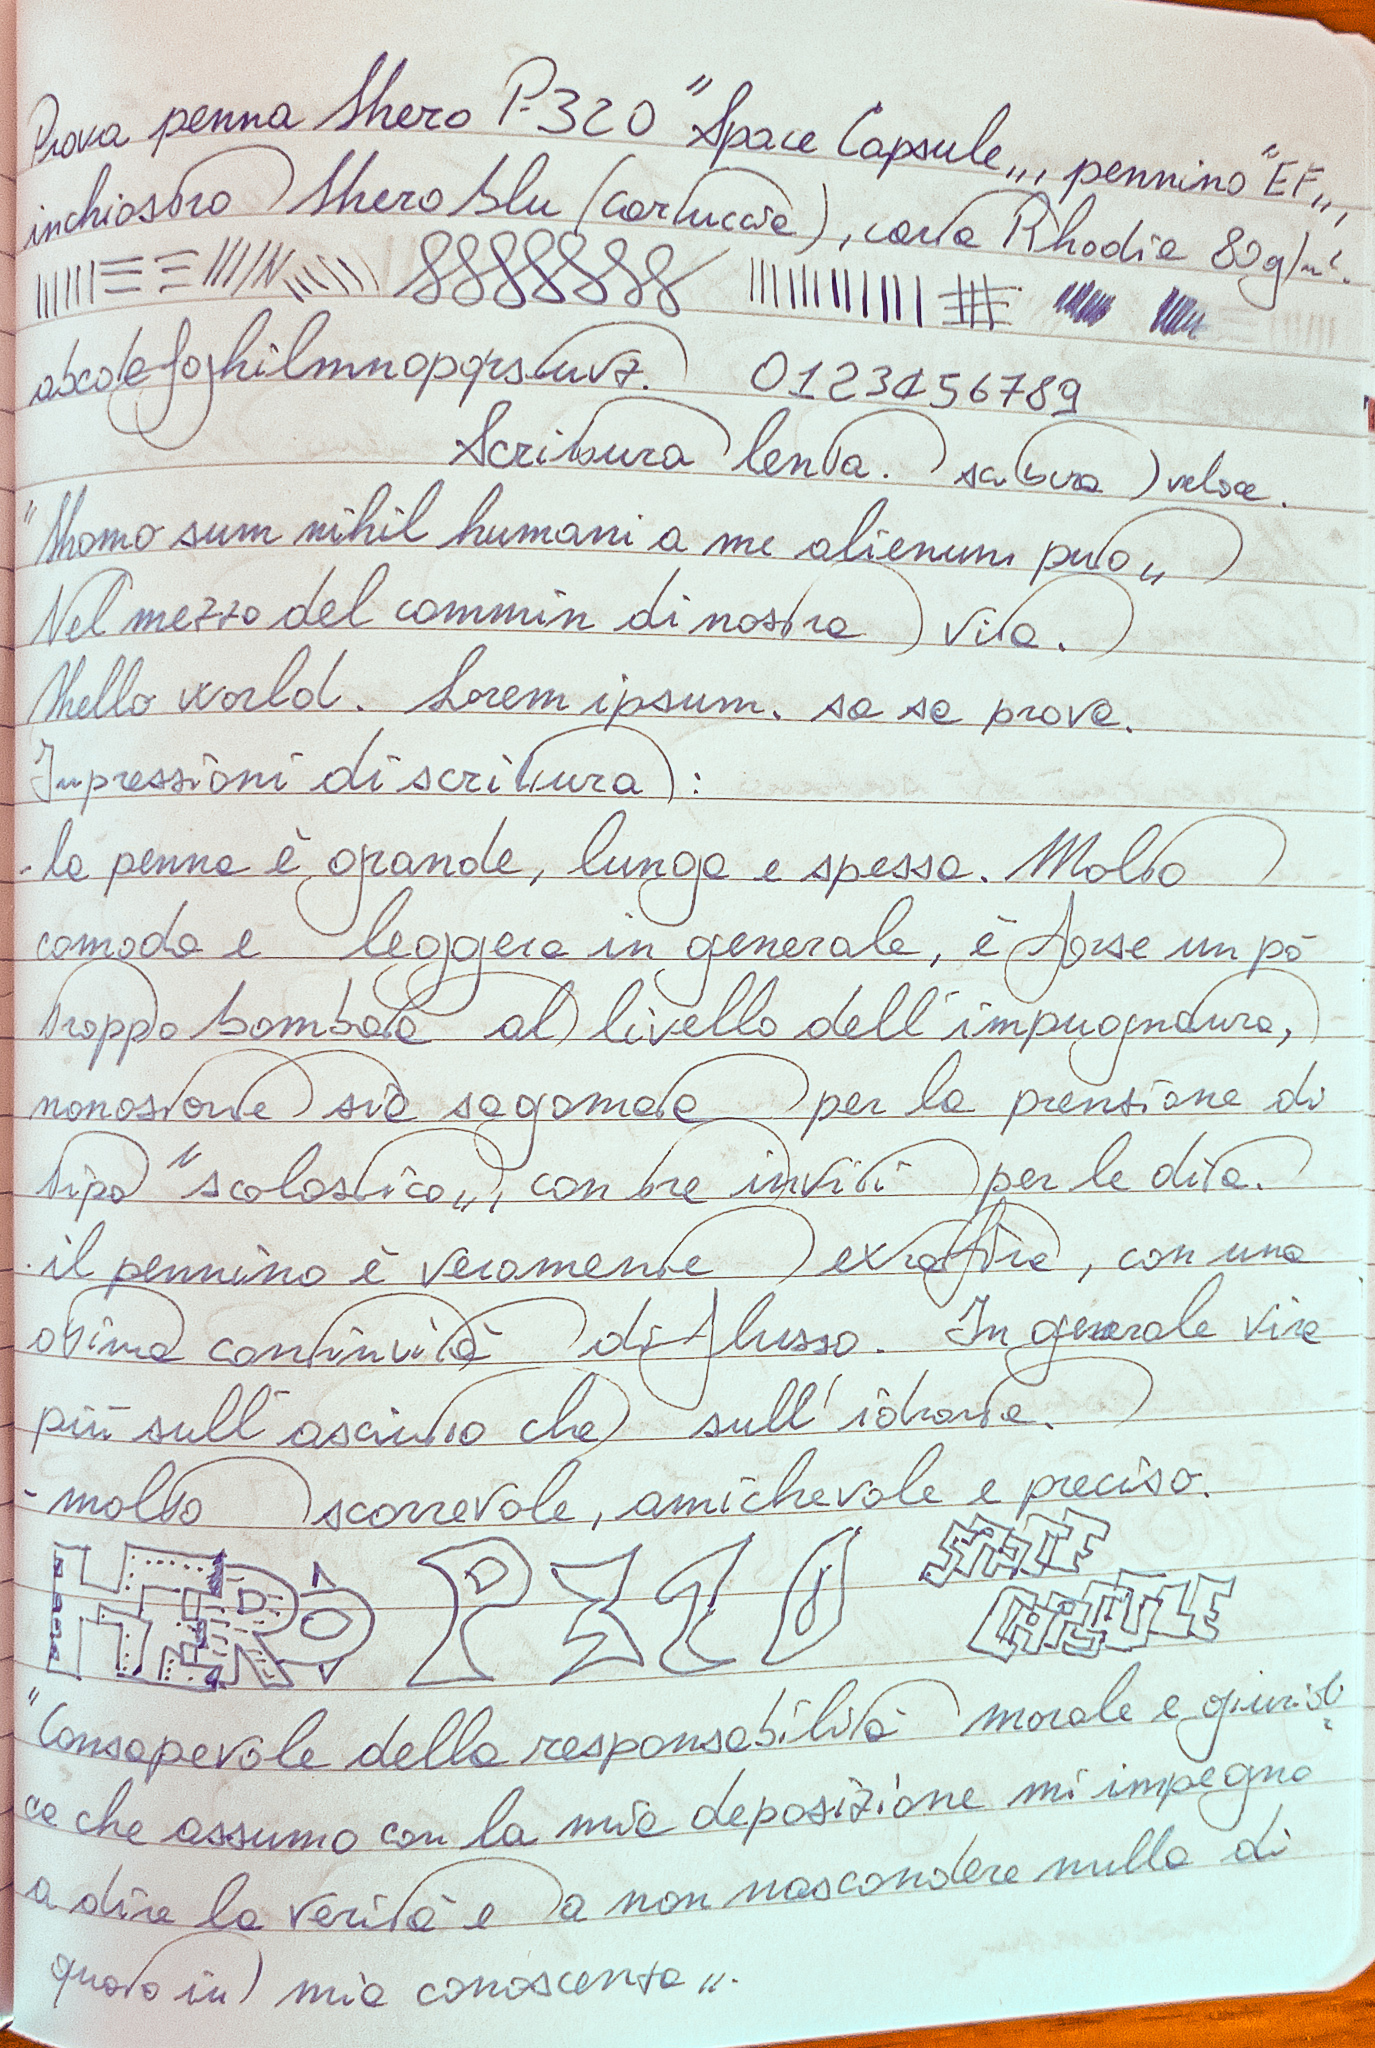 Prova penna Hero P-320 "Space Capsule", pennino "EF",
inchiostro Hero blu (cartuccia), carta Rhodia 80g/m².
abcdefghilmnopqrstuvz. 0123456789
Scrittura lenta. scrittura veloce.
"Homo sum nihil humani a me alienum puto"
Nel mezzo del cammin di nostra vita.
Hello world. Lorem ipsum. sa sa prova.
Impressioni di scrittura:
- la penna è grande, lunga e spessa. Molto
comoda e leggera in generale, è forse un pò
troppo bombata al livello dell'impugnatura,
nonostante sia sagomata per la prensione di
tipo "scolastico", con tre inviti per le dita.
- il pennino è veramente extrafine, con una
ottima continuità di flusso. In generale vira
più sull'asciutto che sull'idrante.
- molto scorrevole, amichevole e preciso.
HERO P320 SPACE CAPSULE
"Consapevole della responsabilità morale e giuridi-
ca che assumo con la mia deposizione mi impegno
a dire la verità e a non nascondere nulla di
quato in mia conoscenza".